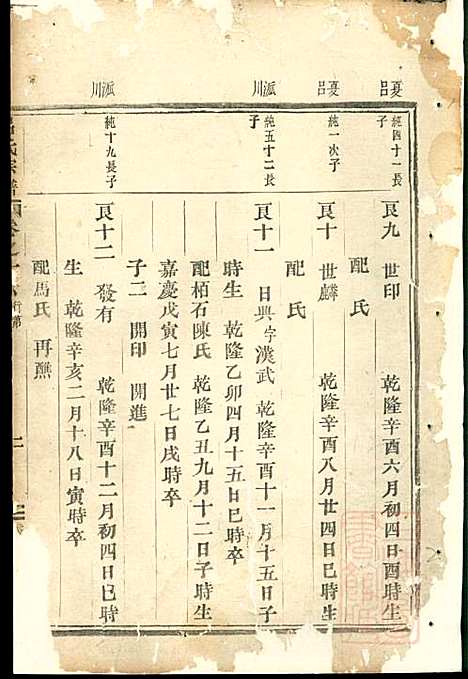 夏吕
純四十一長子
良九 世印 乾隆辛酉六月初四日酉時生
配氏
夏吕
純一次子
良十 世麟 乾隆辛酉八月廿四日巳時生
配氏
派川
純五十二長子
良十一 日興字漢武 乾隆辛酉十一月十五日子
時生 乾隆乙卯四月十五日巳時卒
配栢石陳氏 乾隆乙丑九月十二日子時生
嘉慶戊寅七月廿七日戌時卒
子二 開印 開進
派川
純十九長子
良十二 發有 乾隆辛酉十二月初四日巳時
生 乾隆辛亥二月十八日寅時卒
配馬氏 再醮
氏宗譜
行第
二